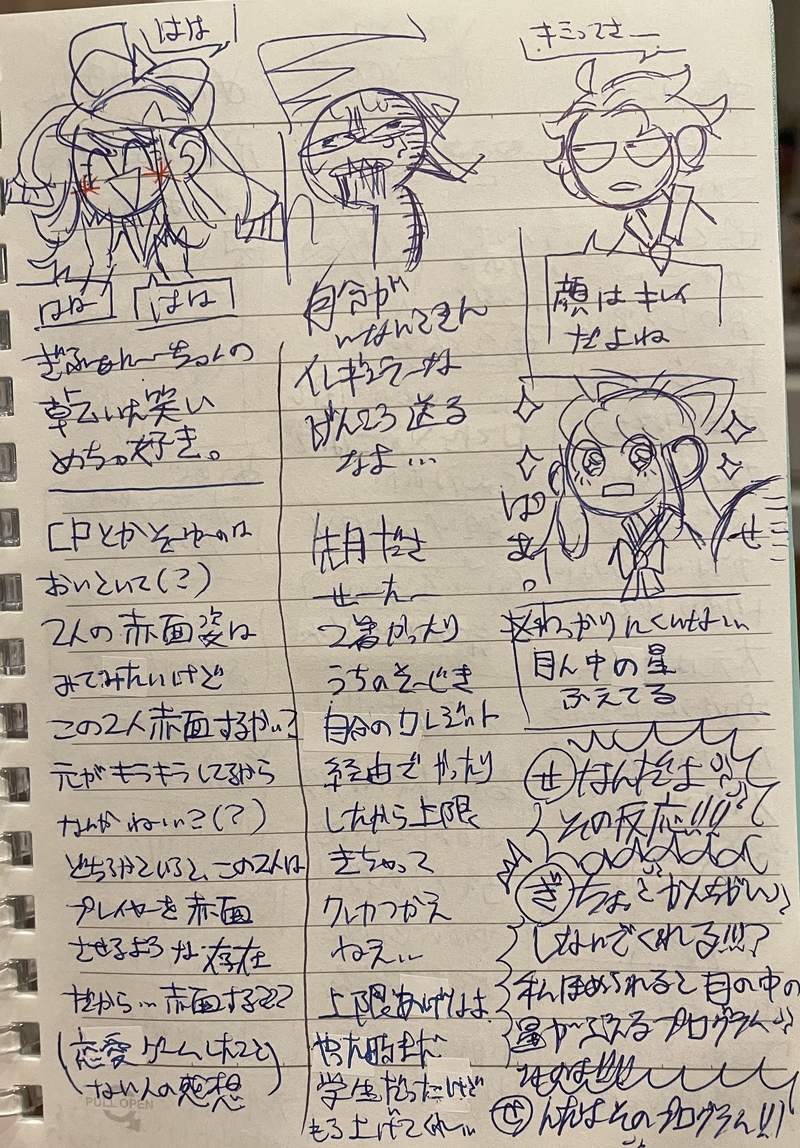 はは
はは
はは
ぎふぁんーちゃんの
乾いた笑い
めちゃ好き。
CPとかそーゆーのは
おいといて(?)
2人の赤面姿は
みてみたいけど
この2人赤面するかい?
元がキラキラしてるから
なんかねい?(?)
どちらかというと、この2人は
プレイヤーを赤面
させるような存在
だから…赤面する??
(恋愛ゲームしたこと
ない人の感想)
自分が
イレギュラーな
送る
なよ…
先月ださ
せーえー
2着かったり
うちのそーじき
自分のクレジット
経由でかったり
したから上限
きちゃって
クレカつかえ
ねぇ…
上限あげはよ
やった時まだ
学生だったけど
もう上げてくれ…
キミってさー
顔はキレイ
だよね
ぱあ。
せ
※わかりにくいけど…
目ん中の星
ふえてる
せ なんだよ
その反応!!!
ぎ ちょっとかんちがい
しないでくれる!!!?
私ほめられると目の中の
星がふえるプログラム
なのよ!!!
せ んだよそのプログラム!!!
PULL OPEN